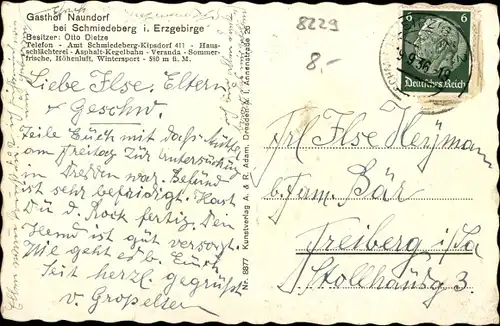 Gasthof Naundorf
bei Schmiedeberg i. Erzgebirge
Besitzer: Otto Dietze
Telefon - Amt Schmiedeberg-Kipsdorf 411 - Haus-
schlächterei - Asphalt-Kegelbahn - Veranda - Sommer-
frische, Höhenluft, Wintersport - 580 m ü. M.
Liebe Ilse, Eltern
+ Geschw.
Teile Euch mit daß
am Freitag zur Untersuchung
in Dresden war. Befund
ist sehr befriedigt. Hast
Du d. Rock fertig. Dein
Hemd ist gut versorgt.
Wie geht es b. Euch.
Seit herzl. gegrüßt
v. Großeltern
Nr. 8877 Kunstverlag A. & R. Adam, Dresden-A. 1, Annenstraße 26
8229
8.-
6 6
Deutsches Reich
Frl Ilse Heymann
b. Fam. Bär
Freiberg i/Sa
Stollhausg 3.